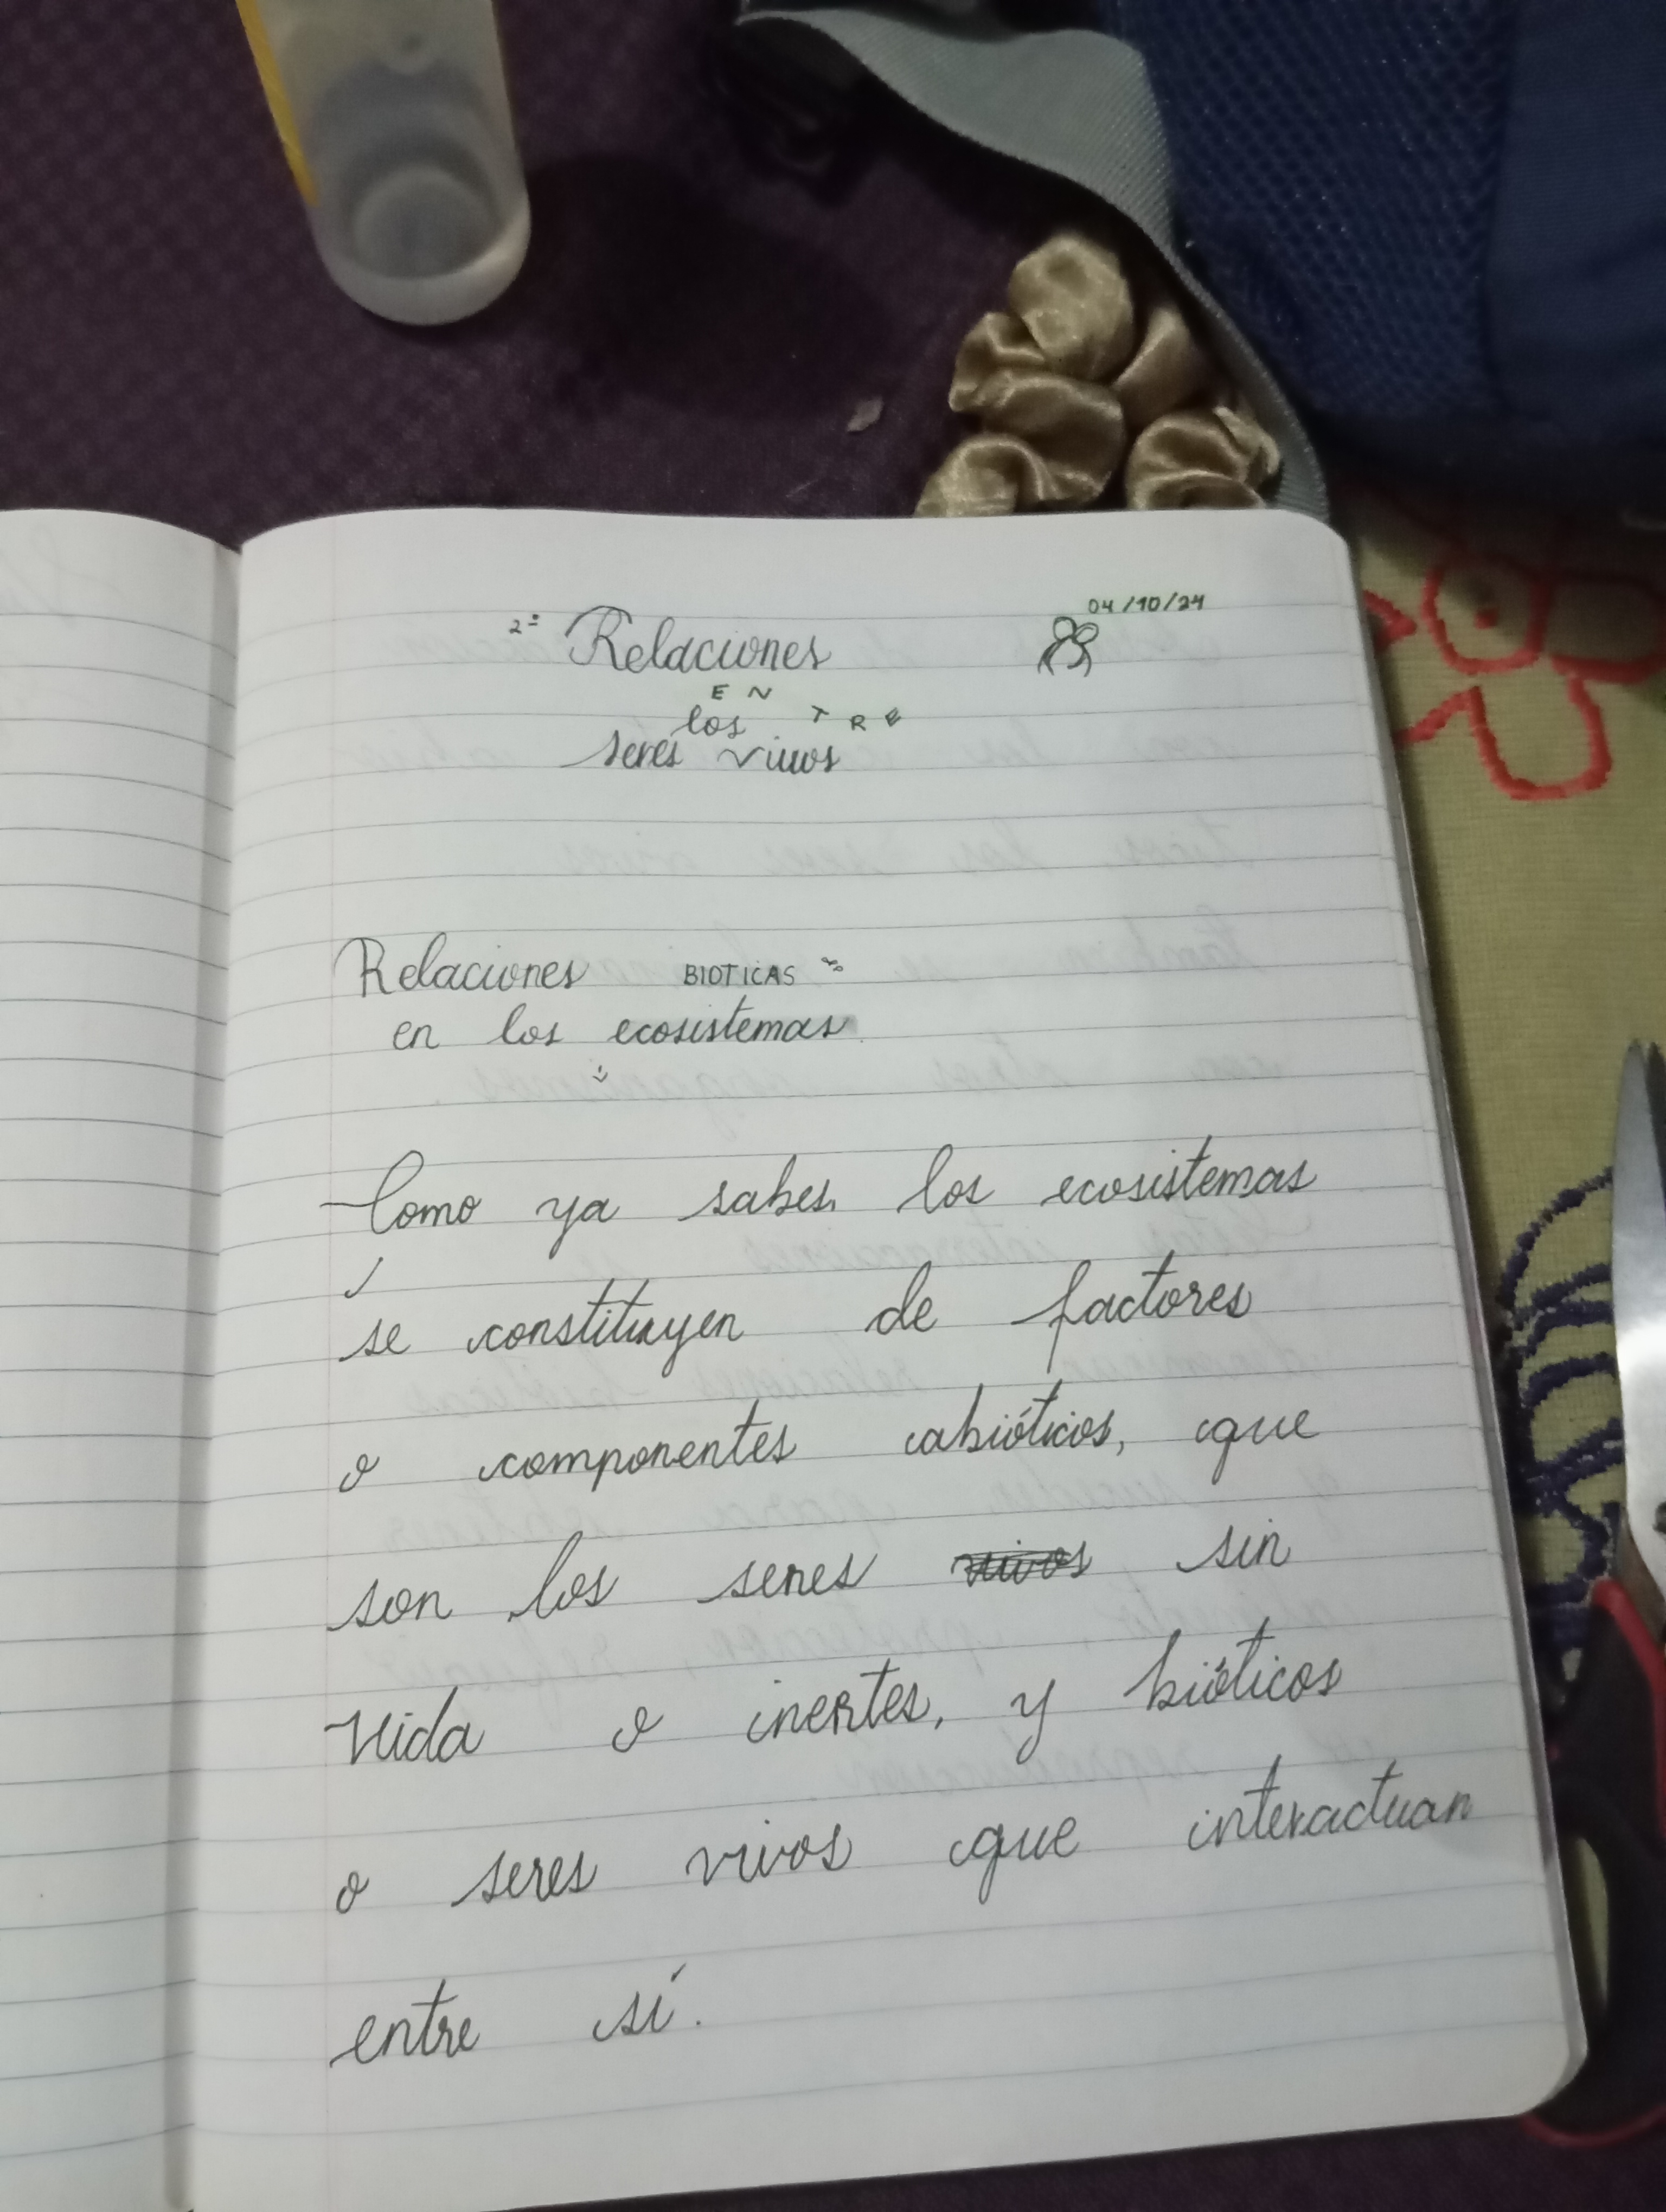 04/10/24
2= Relaciones
EN
los TRE
seres vivos
Relaciones BIOTICAS
en los ecosistemas
Como ya sabes los ecosistemas
se constituyen de factores
o componentes abióticos, que
son los seres vivos sin
vida o inertes, y bióticos
o seres vivos que interactuan
entre sí.